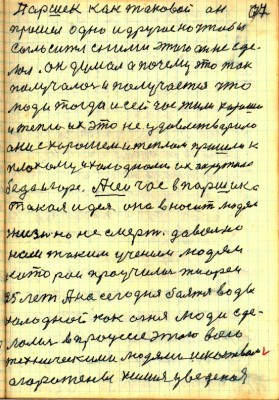 Паршек как таковой он 67
пришел одно и другое чтобы
согласится с ними этого он не сде-
лал. Он думал а почему это так
получалось и получается что
люди тогда и сейчас жили хорошо
и тепло их это не удовлетворило
они с хорошем и теплом пришли к
плохому и холодному их окружало
беда и горе. А сейчас в паршика
такая идея она вносит людям
жизнь но не смерт. довольно
нам таким учением людям
которои проучились творец
25 лет. А на сегодня боятся воды
холодной как огня люди сде-
лались в процессе этого всего
техническими людьми искуствено
огорожены химия введеная